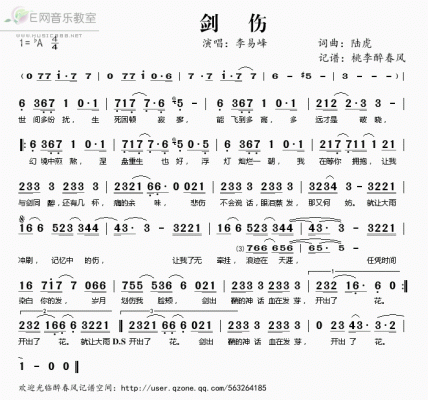 E网音乐教室
WWW.MUSIC888.NET
剑 伤
1=♭A 4/4
演唱：李易峰 词曲：陆虎
记谱：桃李醉春风
(0 77 i·7 7 | 0 77 i· 7 | 0 77 i·7 7 | 6 - #5 - | 3 - - -)
6 367 1 0·1 | 717 7·6 5 - | 6 367 1 0·1 | 212 2·3 3 |
世 间多纷 扰，生 死困顿 寂寥， 能 飞到多 高，多 远才是 破晓，
6 367 1 0·1 | 717 7·6 5 - | 6 367 1 0·1 | 217 711 1 21
幻 境中煎 熬，涅 槃重生 也 好，浮 灯 灿烂一 朝，我 在等你 拥抱，让我
233 3 233 3 | 2321 66· 0 021 | 233 3 233 3 | 3234 3 - 3221
与剑同 醉，还有几 杯， 痛的余 味， 悲伤 不会说 话，眼泪蒸 发， 那又何 妨。 就让大雨
16 6 523 344 | 43· 3 - 3221 | 16 6 523 344 | 43· 3 - 3221
(3) 766 656 | 65· 5 -
冲刷， 记忆中 的伤， 让我了无 牵挂， 浪迹在 天涯， 任凭时间
16 717 7 036 | 755 536 6 021 | 233 3 233 3 | 232 16· 6 0
染白 你的发， 岁月 划伤我 脸颊， 剑出 鞘的神 话 血在发 芽， 开出了 花。
232 166 6 3221 | D.S 2321 66· 0 021 | 233 3 233 3 | 232 2 - -
开出了 花。 就让大雨 开出了 花。 剑出 鞘的神 话 血在发 芽， 开出了 花。
1 - 0 0
欢迎光临醉春风记谱空间：http://user.qzone.qq.com/563264185